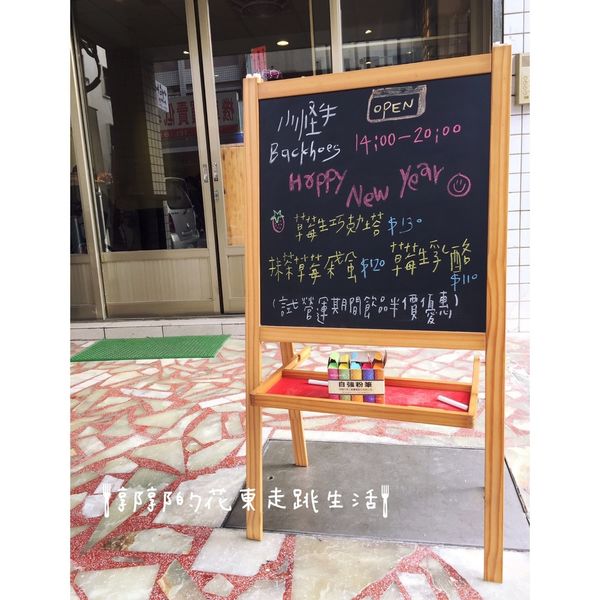 OPEN
小怪手
Backhoes 14:00-20:00
Happy
New Year
莓生巧克塔 $130
抹茶草莓千層 $120
莓生乳酪 $110
(試營運期間飲品半價優惠)
自強粉筆
郭郭的花東走跳生活